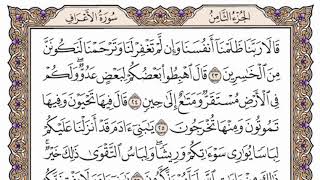 الجزء الثامن
سورة الأعراف
قَالَا رَبَّنَا ظَلَمْنَا أَنفُسَنَا وَإِن لَّمْ تَغْفِرْ لَنَا وَتَرْحَمْنَا لَنَكُونَنَّ
مِنَ الْخَاسِرِينَ ٢٣ قَالَ اهْبِطُوا بَعْضُكُمْ لِبَعْضٍ عَدُوٌّ وَلَكُمْ
فِي الْأَرْضِ مُسْتَقَرٌّ وَمَتَاعٌ إِلَىٰ حِينٍ ٢٤ قَالَ فِيهَا تَحْيَوْنَ وَفِيهَا
تَمُوتُونَ وَمِنْهَا تُخْرَجُونَ ٢٥ يَا بَنِي آدَمَ قَدْ أَنزَلْنَا عَلَيْكُمْ
لِبَاسًا يُوَارِي سَوْآتِكُمْ وَرِيشًا وَلِبَاسُ التَّقْوَىٰ ذَٰلِكَ خَيْرٌ